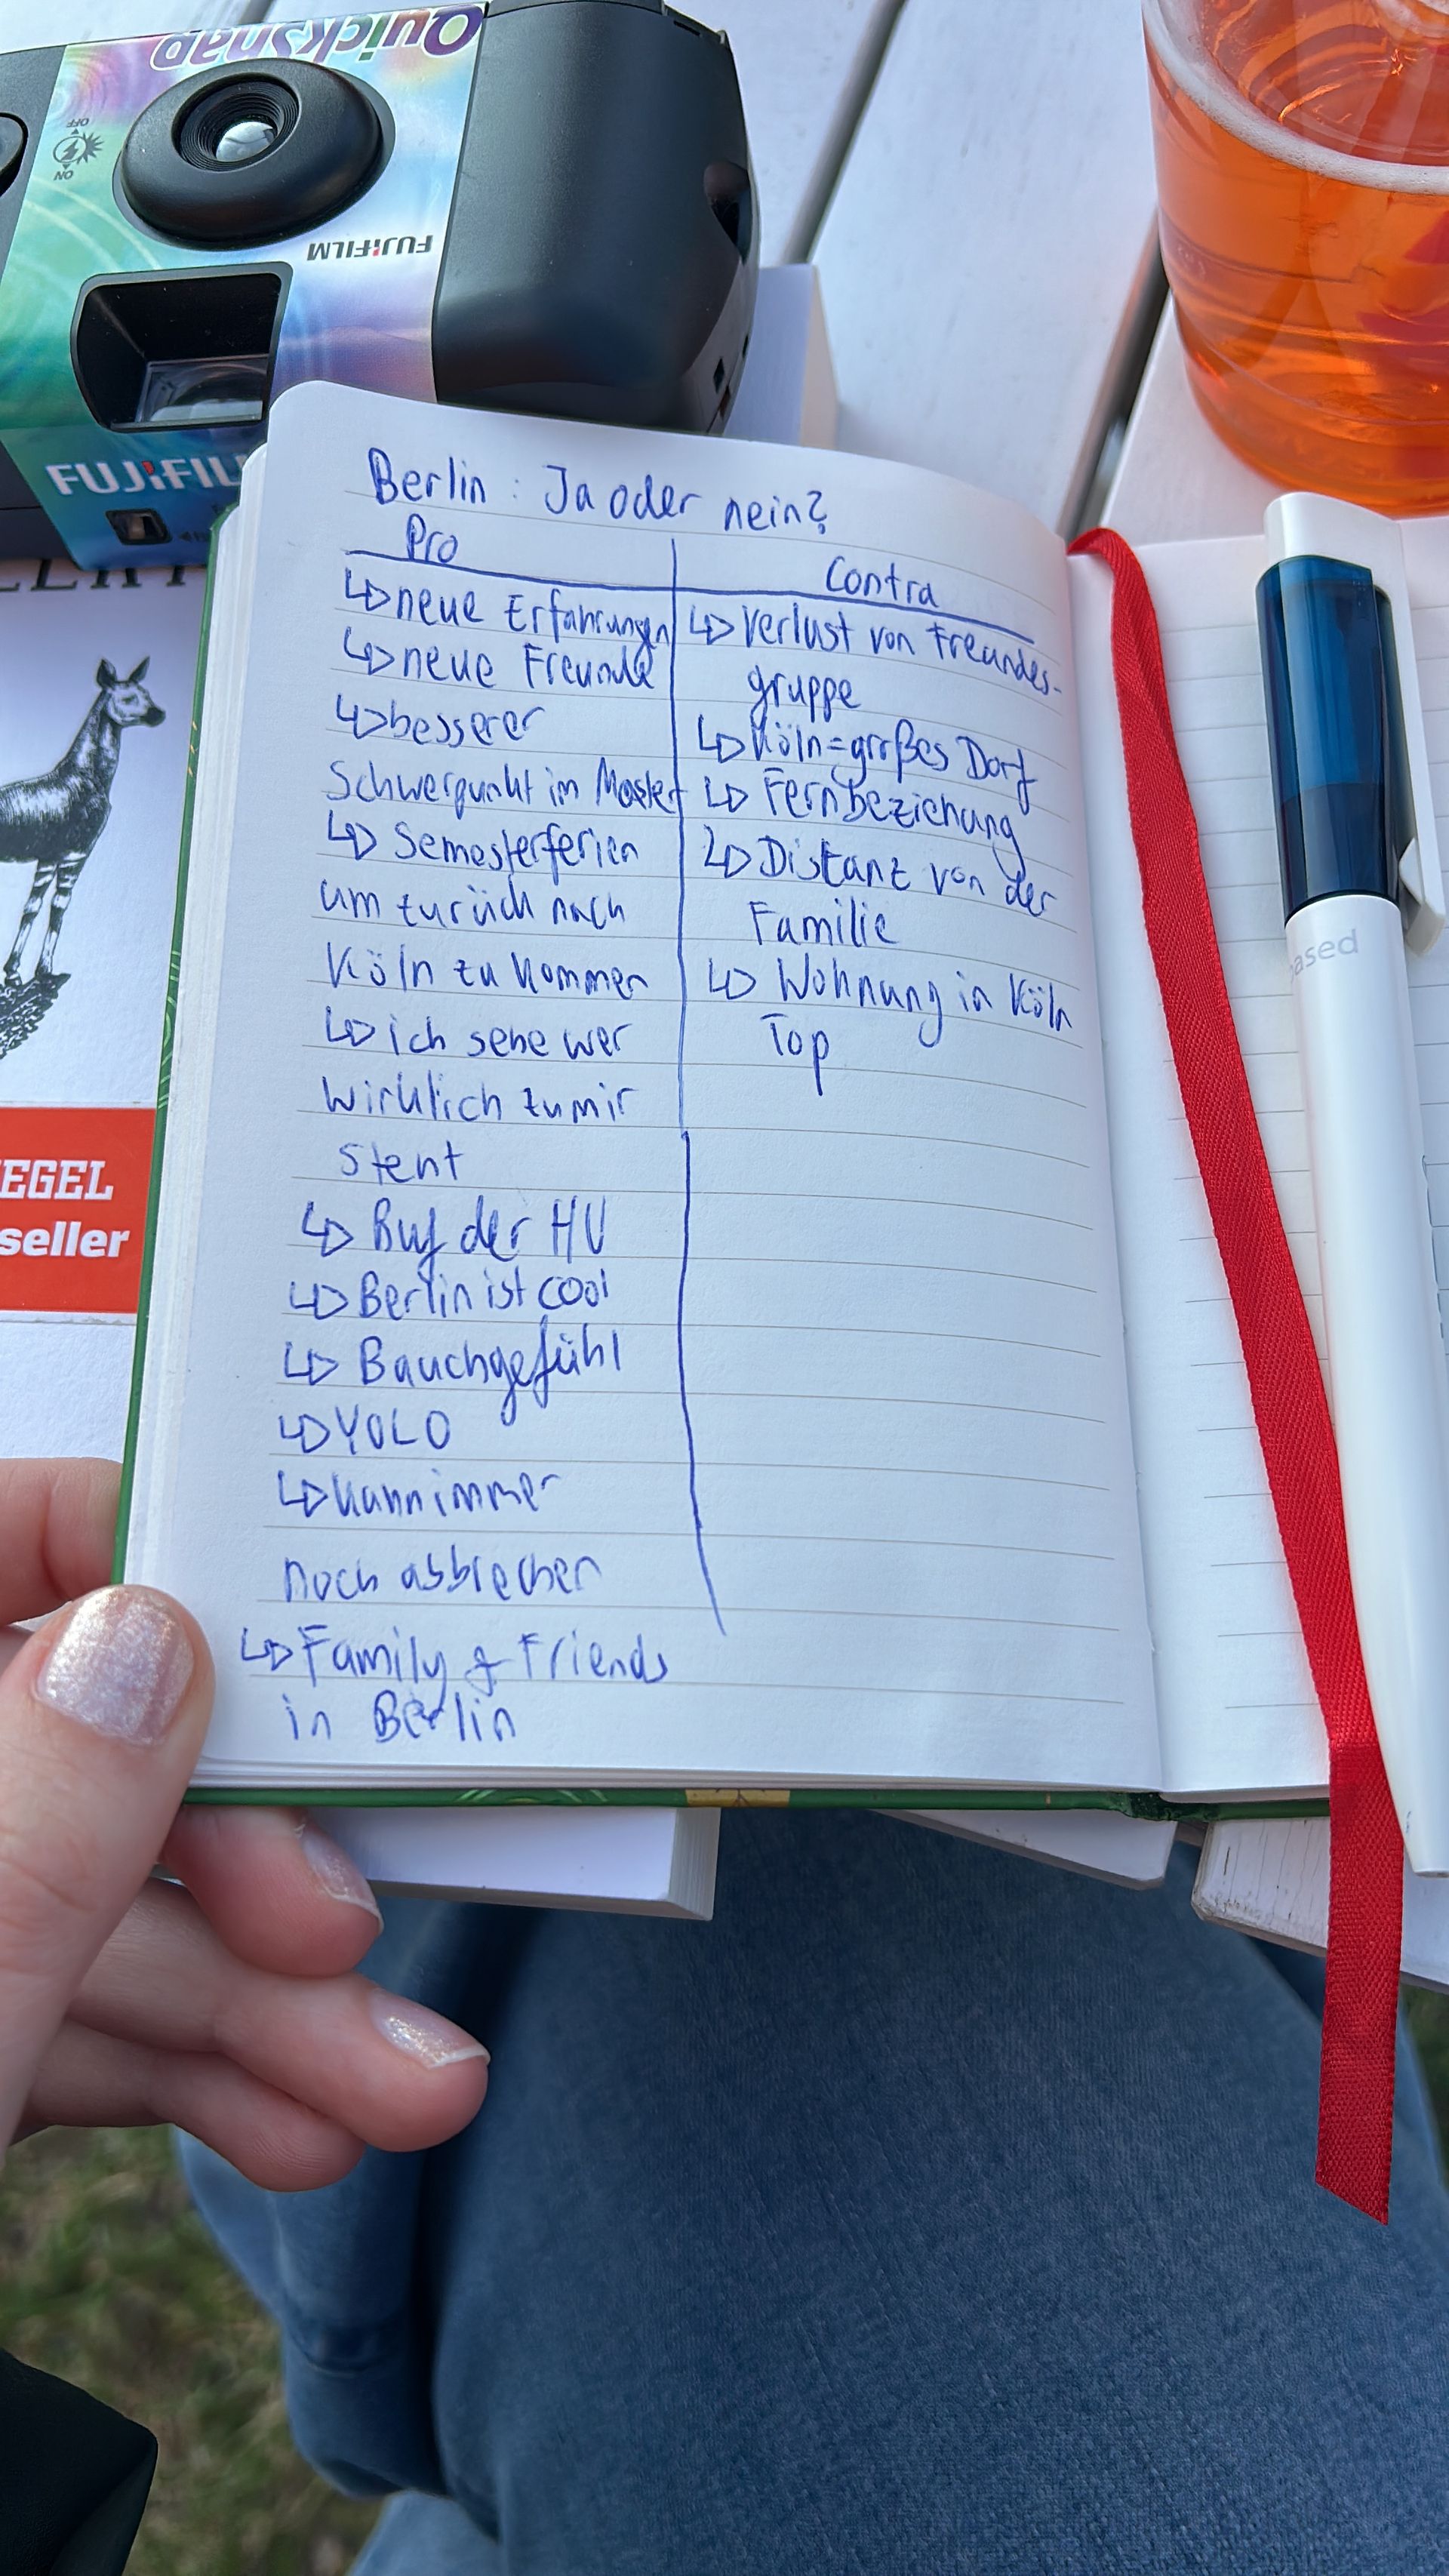 QuickSnap
OFF
ON
FUJIFILM
FUJIFIL
Berlin : Ja oder nein?
Pro
↳ neue Erfahrungen
↳ neue Freunde
↳ besserer
Schwerpunkt im Master
↳ Semesterferien
um zurück nach
Köln zu kommen
↳ ich sehe wer
wirklich zu mir
steht
↳ Ruf der HU
↳ Berlin ist cool
↳ Bauchgefühl
↳ YOLO
↳ kann immer
noch abbrechen
↳ Family & Friends
in Berlin
Contra
↳ Verlust von Freundes-
gruppe
↳ Köln = großes Dorf
↳ Fernbeziehung
↳ Distanz von der
Familie
↳ Wohnung in Köln
Top
EGEL
seller
ased